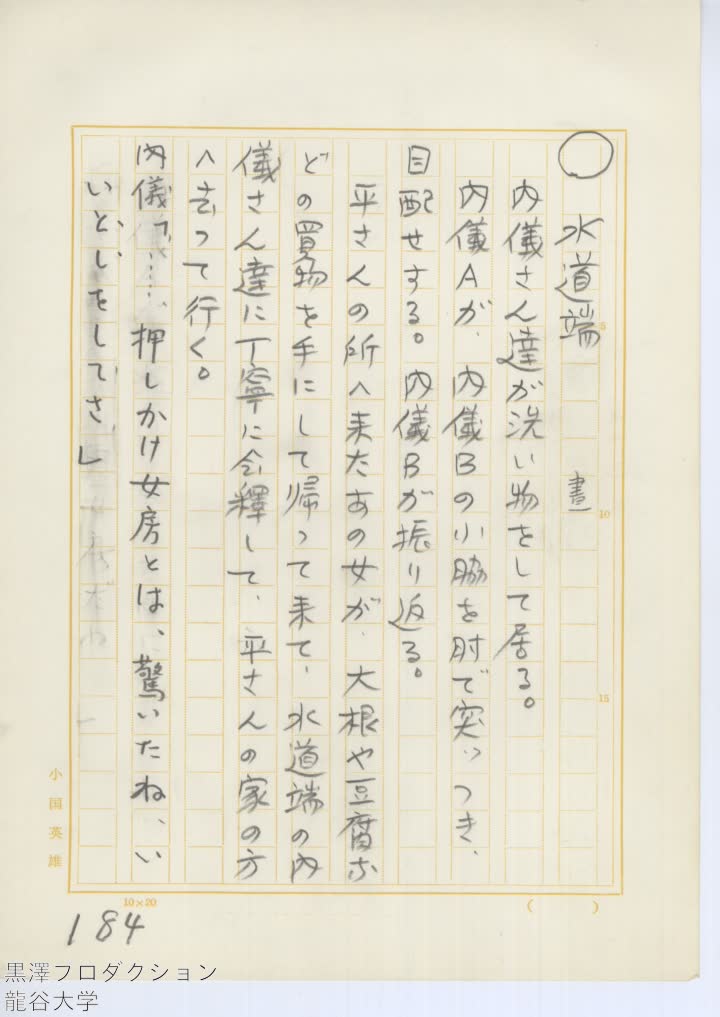 ○ 水道端 晝
内儀さん達が洗い物をして居る。
内儀Aが、内儀Bの小脇を肘で突っつき、
目配せする。内儀Bが振り返る。
平さんの所へ来たあの女が、大根や豆腐な
どの買物を手にして帰って来て、水道端の内
儀さん達に丁寧に会釋して、平さんの家の方
へ去って行く。
内儀「……押しかけ女房とは、驚いたね、い
いとしをしてさ」
小国英雄
10×20
( )
5
10
15
184
黒澤プロダクション
龍谷大学